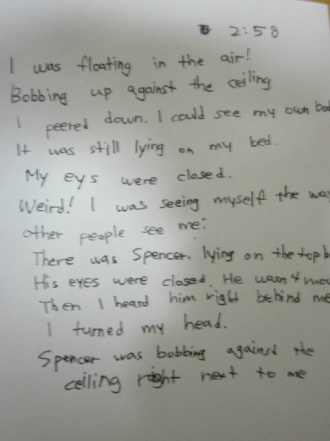 2:58
I was floating in the air!
Bobbing up against the ceiling
I peered down. I could see my own bo
It was still lying on my bed.
My eys were closed.
Weird! I was seeing myself the way
other people see me:
There was Spencer. lying on the top b
His eyes were closed. He wasn't mov
Then I heard him right behind me
I turned my head.
Spencer was bobbing against the
ceiling right next to me